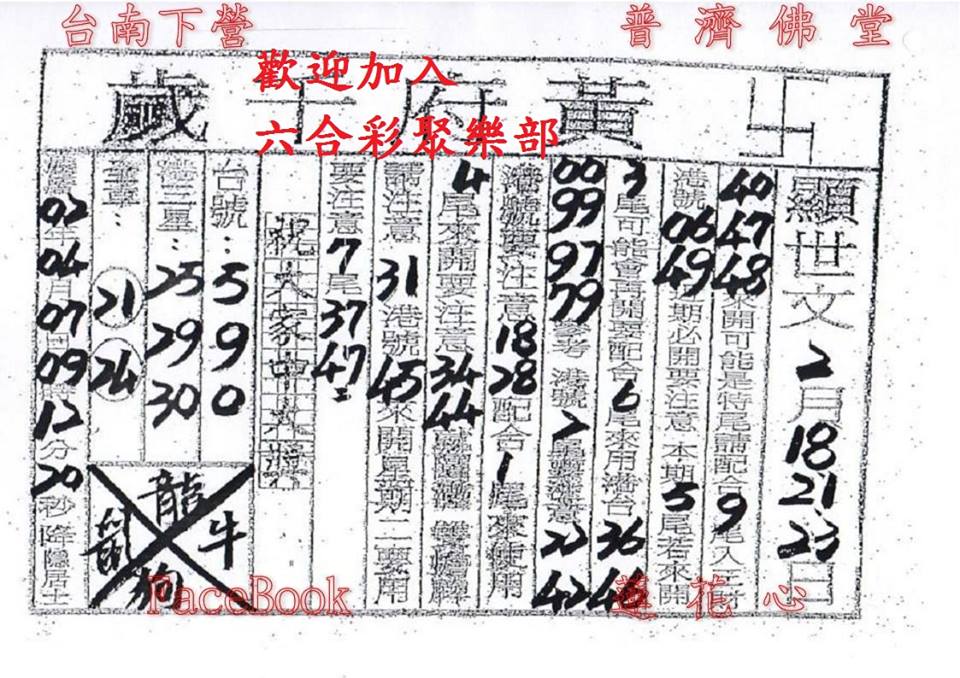 台南下營
普濟佛堂
歡迎加入
六合彩聚樂部
黃府千歲
顯世文2月18 21 23日
40 47 48來開可能是特尾請配合9尾入
港號06 49期必開要注意 本期5尾若來開
3尾可能會再開要配合6尾來用港台36 46
00 99 97 79參考 港號2 22 42
港號要注意18 28配合1尾來使用
4尾來開要注意34 44
請注意31港號45來開星期二要用
要注意7尾37 47
祝大家中大獎
台號:5 9 0
港三星:25 29 30
21 24
龍 牛 狗 鼠
02年04月07日09 12分20秒降隱居士
FaceBook
蓮花心